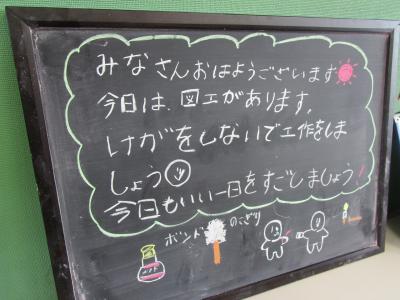 みなさんおはようございます
今日は、図工があります。
けがをしないで工作をしま
しょう
今日もいい一日をすごしましょう!
ボンド のこぎり